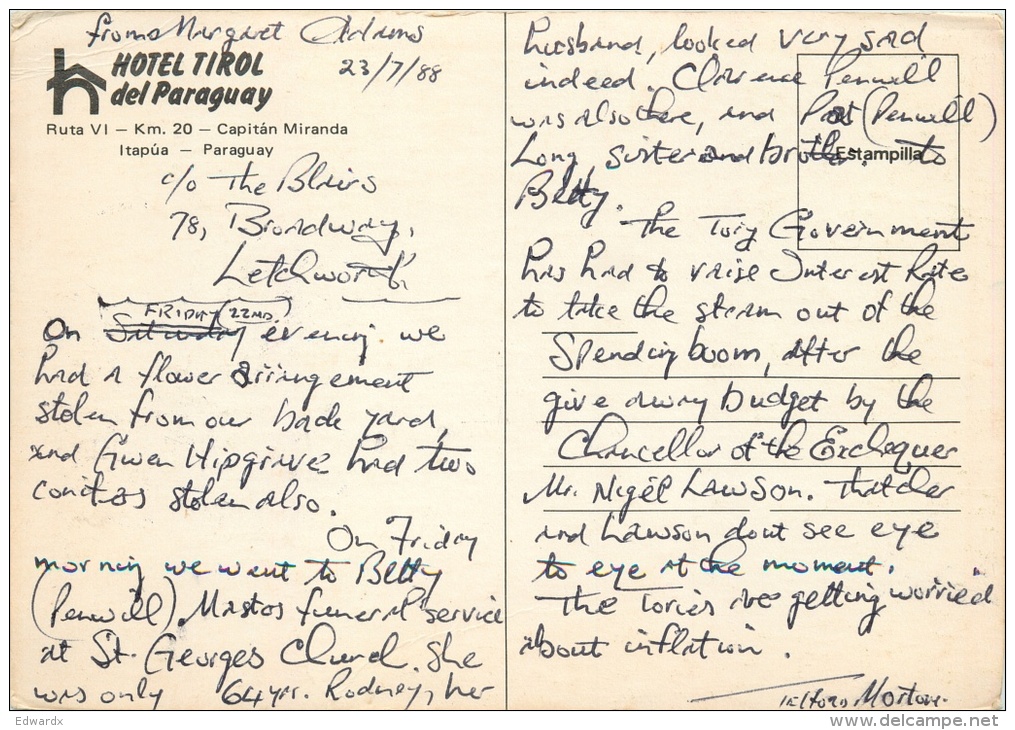 from Margaret Adams
23/7/88
HOTEL TIROL
del Paraguay
Ruta VI – Km. 20 – Capitán Miranda
Itapúa – Paraguay
c/o The Blairs
78, Broadway,
Letchworth
FRIDAY (22ND.)
On Saturday evening we
had a flower arrangement
stolen from our back yard,
and Gwen Hipgrave had two
stolen also.
On Friday
morning we went to Betty
(Penwill) Mastos funeral service
at St. Georges Church. She
was only 64 yrs. Rodney, her
husband, looked very sad
indeed. Clarence Penwill
was also there, and Pat (Penwill)
Long, sister and brother to
Estampilla
Betty.
The Tory Government
has had to raise Interest Rates
to take the steam out of the
Spending boom, after the
give away budget by the
Chancellor of the Exchequer
Mr. Nigel Lawson. Thatcher
and Lawson dont see eye
to eye at the moment.
The Tories are getting worried
about inflation.
Telford Morton.
Edwardx
www.delcampe.net